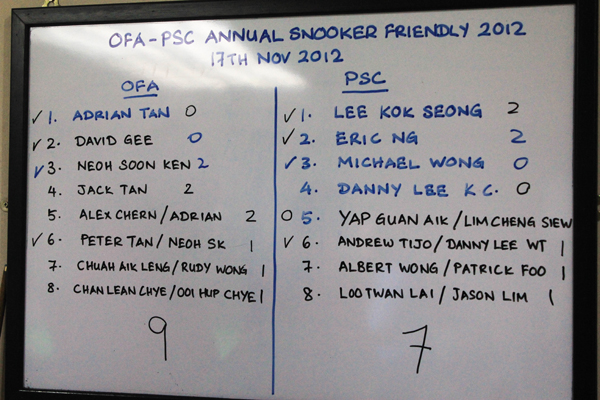 OFA-PSC ANNUAL SNOOKER FRIENDLY 2012
17TH NOV 2012
OFA
✓ 1. ADRIAN TAN 0
✓ 2. DAVID GEE 0
✓ 3. NEOH SOON KEN 2
4. JACK TAN 2
5. ALEX CHERN/ADRIAN 2
✓ 6. PETER TAN/NEOH SK 1
7. CHUAH AIK LENG/RUDY WONG 1
8. CHAN LEAN CHYE/OOI HUP CHYE 1
9
PSC
✓ 1. LEE KOK SEONG 2
✓ 2. ERIC NG 2
✓ 3. MICHAEL WONG 0
4. DANNY LEE K.C. 0
0 5. YAP GUAN AIK/LIM CHENG SIEW
✓ 6. ANDREW TIJO/DANNY LEE WT 1
7. ALBERT WONG/PATRICK FOO 1
8. LOO TWAN LAI/JASON LIM 1
7